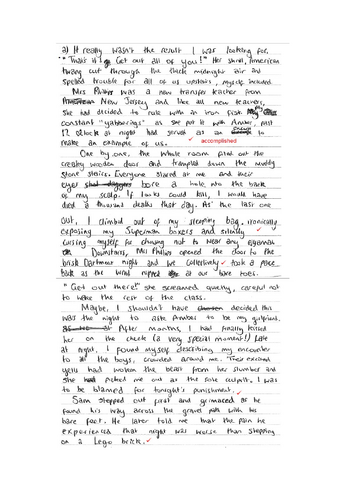 a) It really wasn't the result I was looking for.
"That's it! Get out all of you!" Her shrill, American
twang cut through the thick midnight air and
spelled trouble for all of us upstairs, myself included.
Mrs was a new transfer teacher from
New Jersey and like all new teachers,
she had decided to rule with an iron fist. My
constant "gatherings" as she put it with Amber, past
12 o'clock at night had served as an excuse to
make an example of us. ✓ accomplished
One by one, the whole room filed out the
creaky wooden door and trampled down the muddy
stone stairs. Everyone stared at me and their
eyes bore a hole into the back
of my scalp. If looks could kill, I would have
died a thousand deaths that day. As the last one
out, I climbed out of my sleeping bag, ironically
exposing my Superman boxers and silently ✓
cursing myself for choosing not to wear any pyjamas.
Downstairs, Mrs opened the door to the
brisk Dartmoor night and we collectively ✓ took a pace
back as the wind nipped at our bare toes.
"Get out there!" she screamed quietly, careful not
to wake the rest of the class.
Maybe, I shouldn't have decided this
was the night to ask Amber to be my girlfriend,
After months, I had finally kissed
her on the cheek (a very special moment!) Late
at night, I found myself describing my encounter
to all the boys, crowded around me. Their excited
yells had woken the beast from her slumber and
she had picked me out as the sole culprit. I was
to be blamed for tonight's punishment.
Sam stepped out first and grimaced as he
found his way across the gravel path with his
bare feet. He later told me that the pain he
experienced that night was worse than stepping
on a Lego brick. ✓